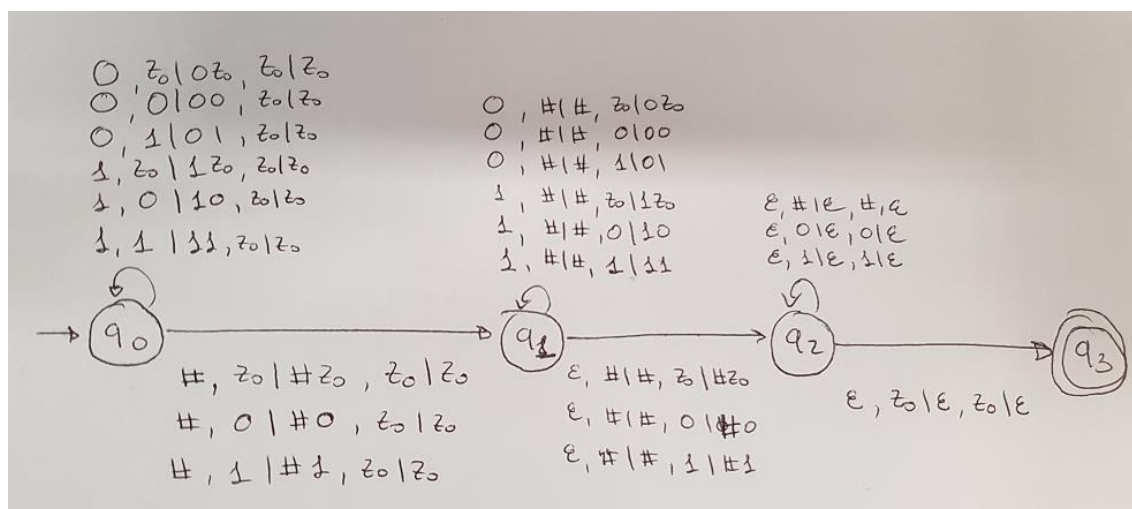 0, z₀|0z₀, z₀|z₀
0, 0|00, z₀|z₀
0, 1|01, z₀|z₀
1, z₀|1z₀, z₀|z₀
1, 0|10, z₀|z₀
1, 1|11, z₀|z₀
0, #|#, z₀|0z₀
0, #|#, 0|00
0, #|#, 1|01
1, #|#, z₀|1z₀
1, #|#, 0|10
1, #|#, 1|11
ε, #|ε, #,ε
ε, 0|ε, 0|ε
ε, 1|ε, 1|ε
q₀
q₁
q₂
q₃
#, z₀|#z₀, z₀|z₀
#, 0|#0, z₀|z₀
#, 1|#1, z₀|z₀
ε, #|#, z₀|#z₀
ε, #|#, 0|#0
ε, #|#, 1|#1
ε, z₀|ε, z₀|ε